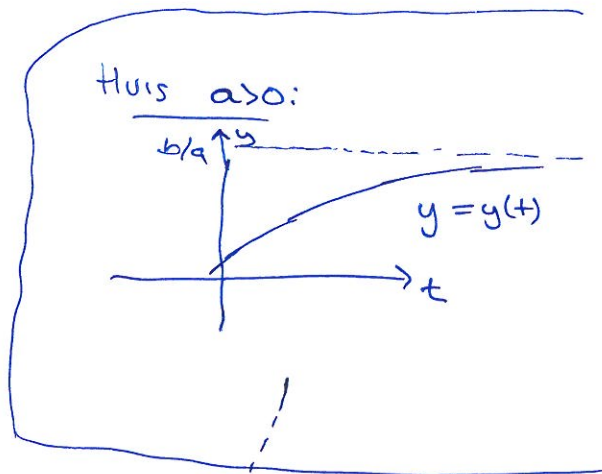 Huis a>0:
b/a y
y = y(t)
t